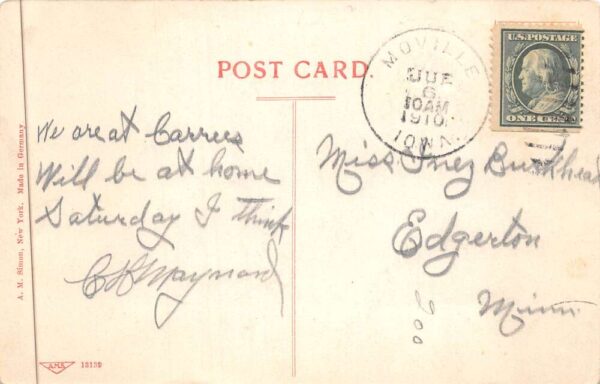 POST CARD
MOVILLE
6
10AM
1910
IOWA
U.S. POSTAGE
ONE CENT
We are at Carrees
Will be at home
Saturday I think
C B Maynard
Miss Inez Burkhead
Edgerton
Minn
200
A. M. Simon, New York. Made in Germany
AMS 13139